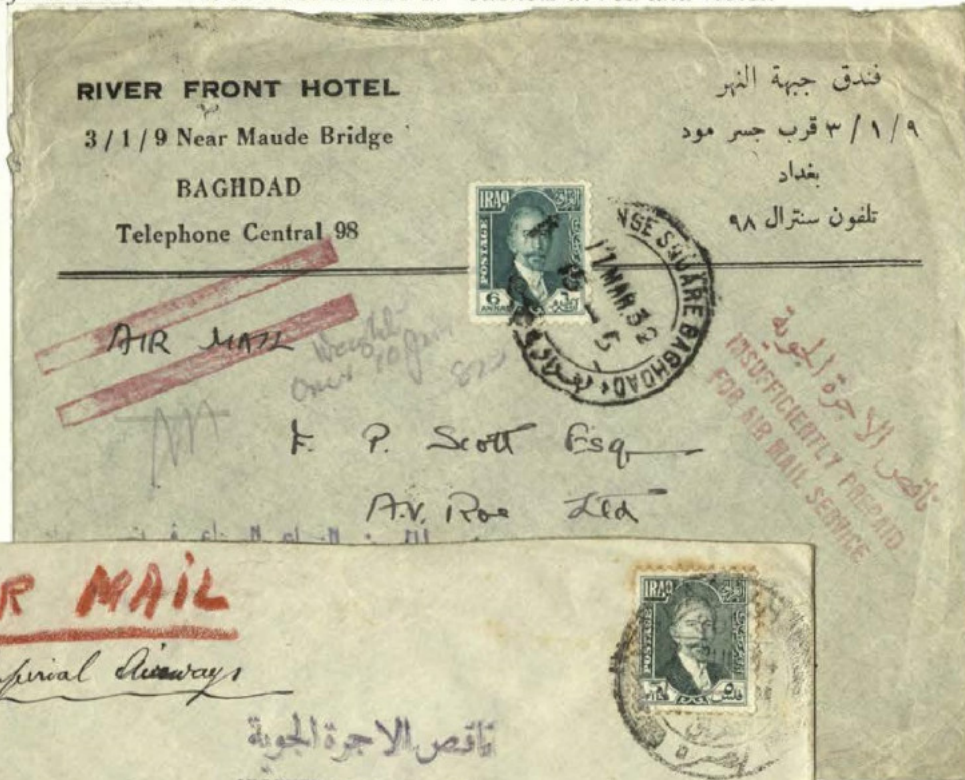 RIVER FRONT HOTEL
3/1/9 Near Maude Bridge
BAGHDAD
Telephone Central 98
فندق جبهة النهر
٣/١/٩ قرب جسر مود
بغداد
تلفون سنترال ٩٨
IRAQ
POSTAGE
6
ANNAS
SQUARE BAGHDAD
17 MAR 32
AIR MAIL
ناقص الاجرة الجوية
INSUFFICIENTLY PREPAID
FOR AIR MAIL SERVICE
F. P. Scott Esq
A.V. Roe Ltd
MAIL
Airways
IRAQ
POSTAGE
ناقص الاجرة الجوية